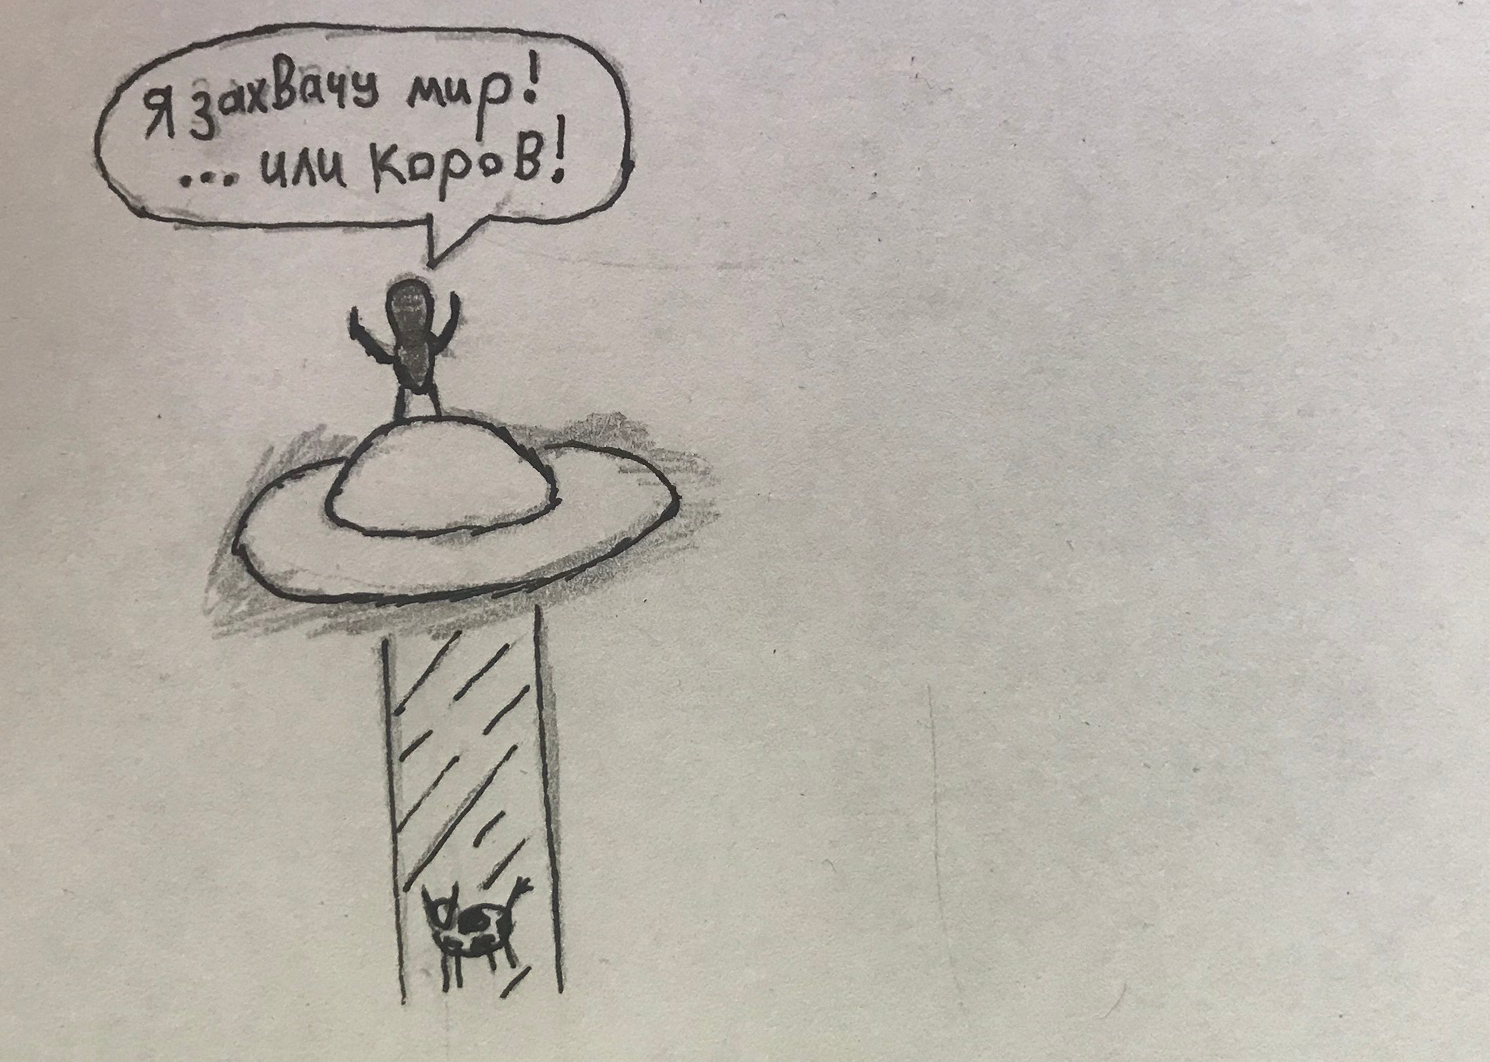 Я захвачу мир!
... или коров!